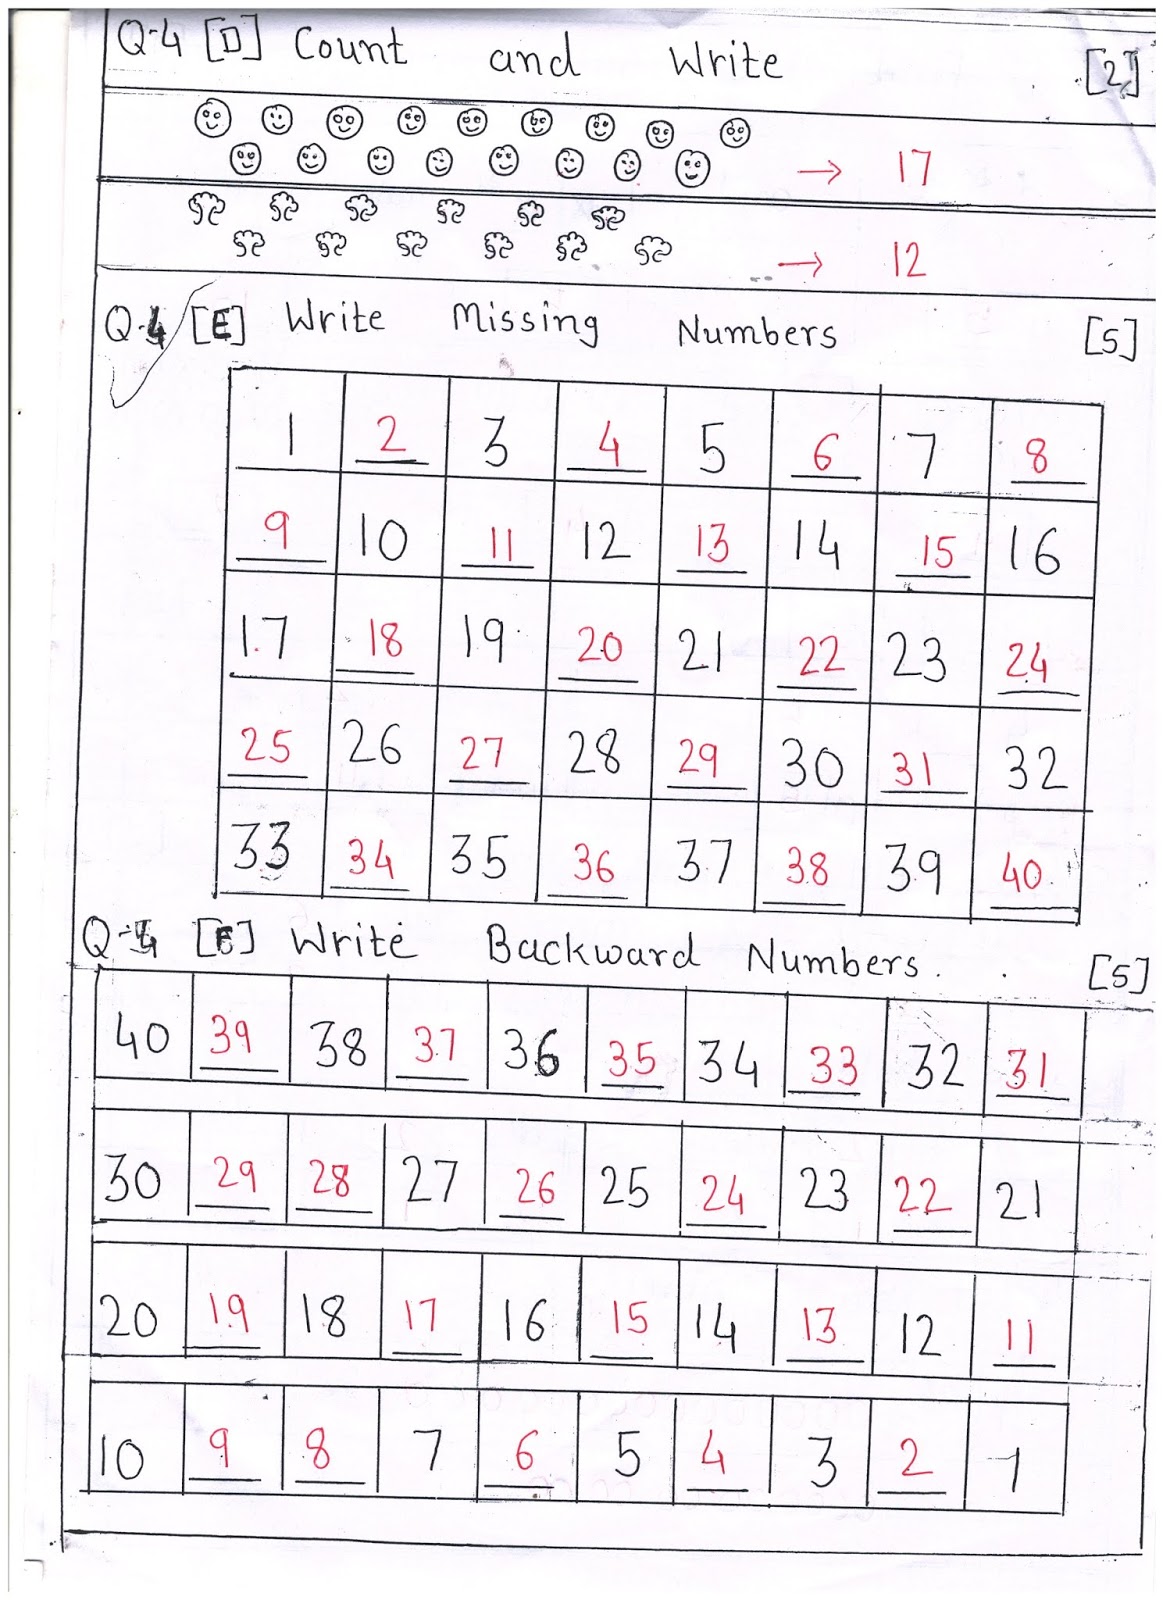 Q-4 [D] Count and Write [2]
→ 17
→ 12
Q-4 [E] Write Missing Numbers [5]
1 2 3 4 5 6 7 8
9 10 11 12 13 14 15 16
17 18 19 20 21 22 23 24
25 26 27 28 29 30 31 32
33 34 35 36 37 38 39 40
Q-4 [E] Write Backward Numbers. [5]
40 39 38 37 36 35 34 33 32 31
30 29 28 27 26 25 24 23 22 21
20 19 18 17 16 15 14 13 12 11
10 9 8 7 6 5 4 3 2 1